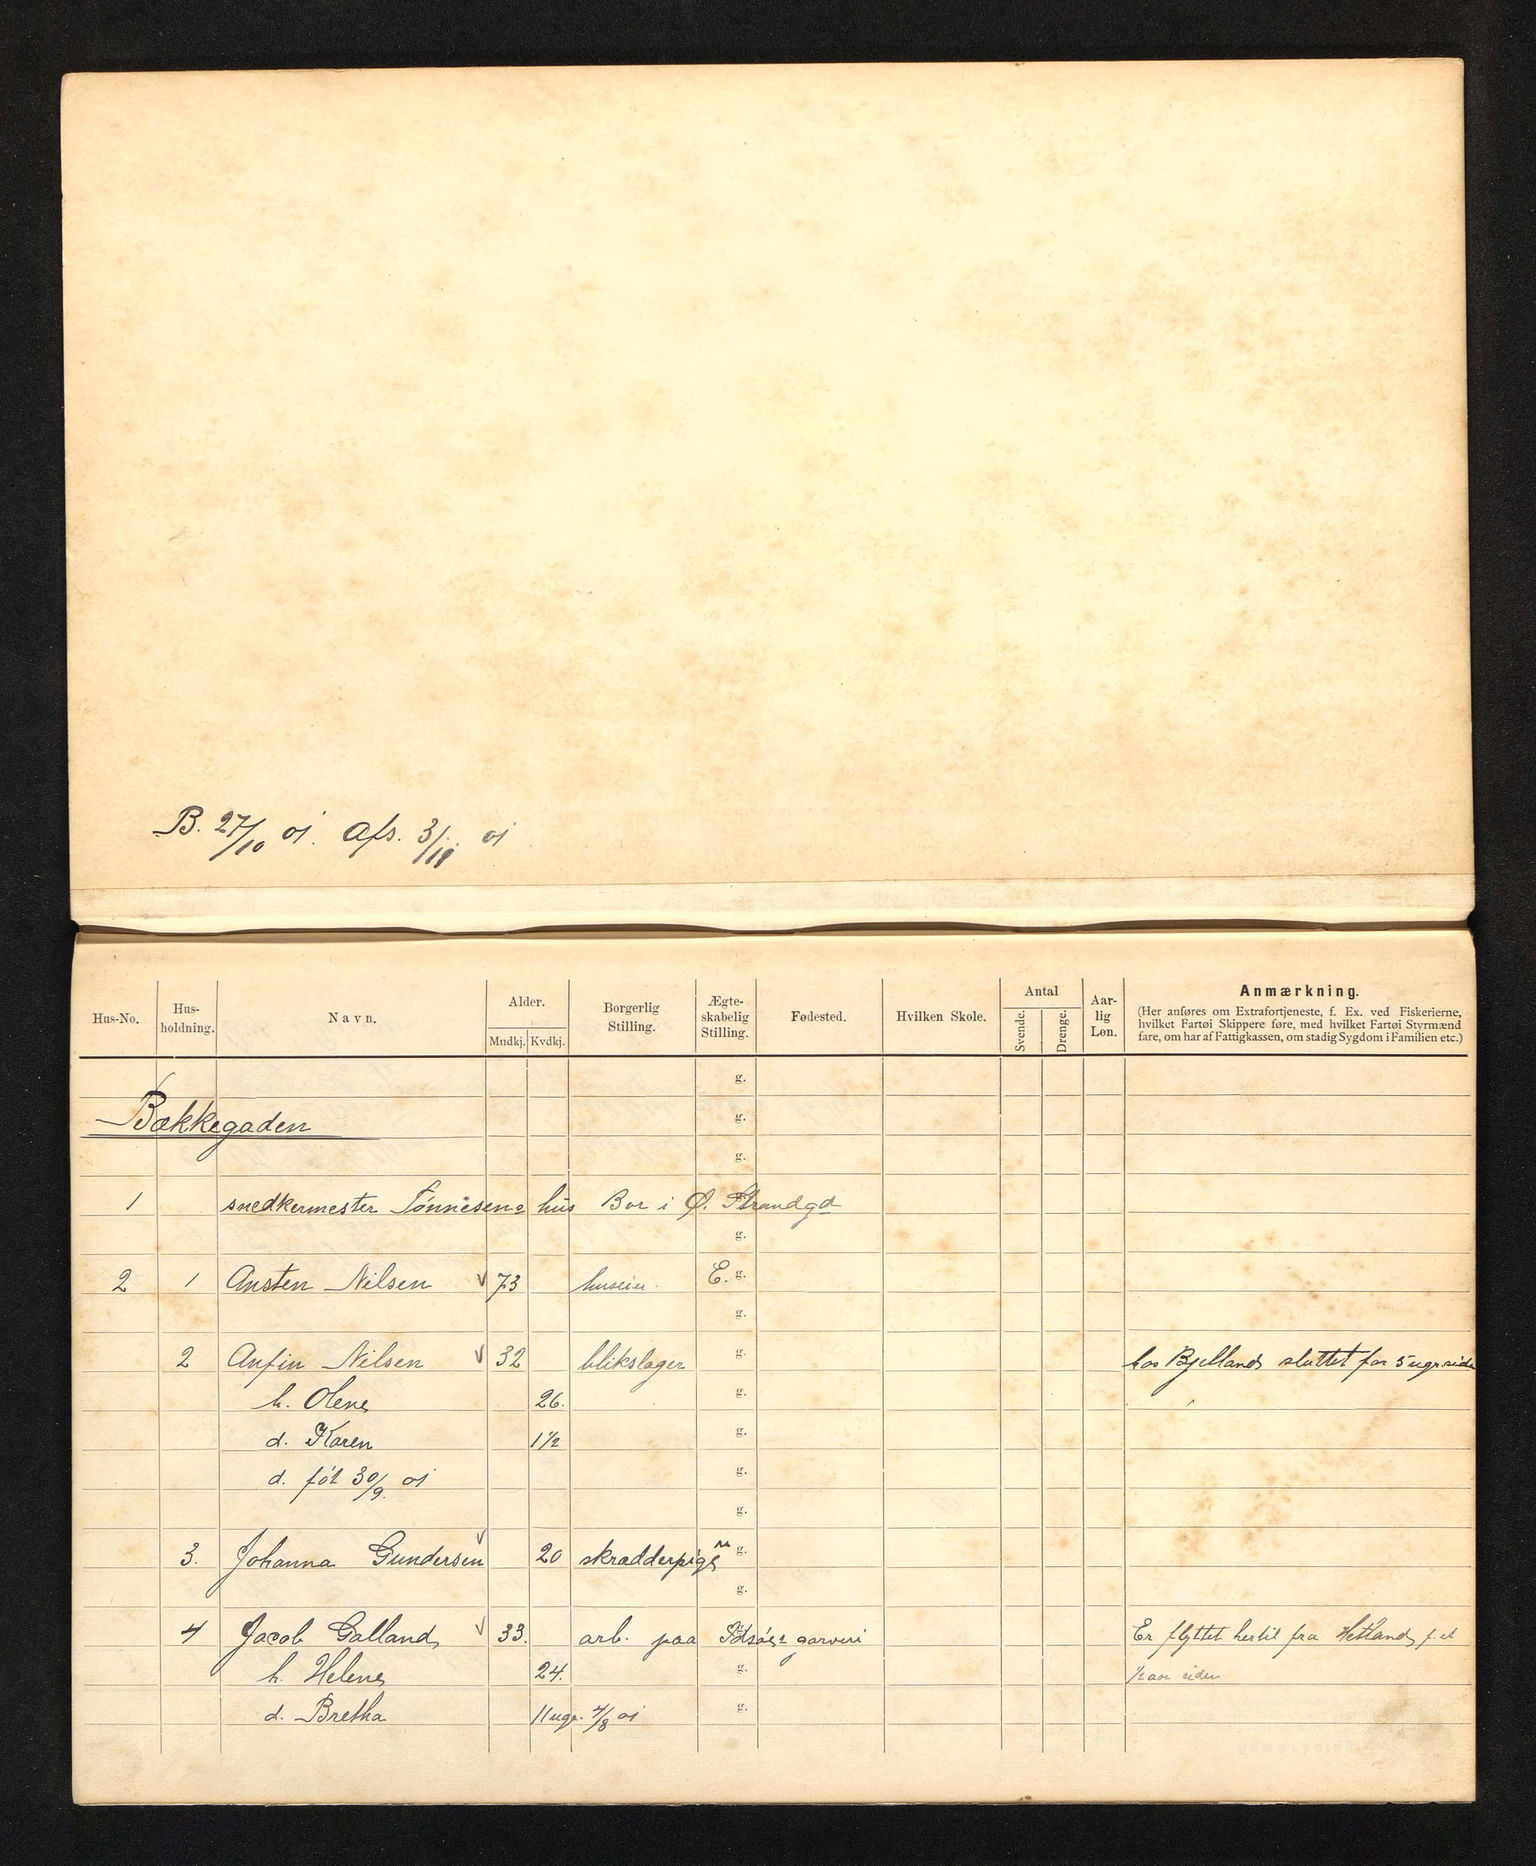 B. 27/10 01. Afs. 3/11 01
Hus-No. Hus-holdning. Navn. Alder. Mndkj. Kvdkj. Borgerlig Stilling. Ægte-skabelig Stilling. Fødested. Hvilken Skole. Antal Svende. Drenge. Aar-lig Løn. Anmærkning.
(Her anføres om Extrafortjeneste, f. Ex. ved Fiskerierne,
hvilket Fartøi Skippere føre, med hvilket Fartøi Styrmænd
fare, om har af Fattigkassen, om stadig Sygdom i Familien etc.)
g.
Bækkegaden g.
g.
1 snedkermester Tønnesens hus Bor i Ø. Strandgd
g.
2 1 Austen Nilsen 73 huseier E. g.
g.
2 Anfin Nilsen 32 blikslager g. hos Bjelland, sluttet for 5 ugr. siden
h. Olene 26. g.
d. Karen 1 1/2 g.
d. føt 30/9. 01 g.
g.
3. Johanna Gundersen 20 skrædderpige g.
g.
4 Jacob Galland 33. arb. paa Idsøes garveri Er flyttet hertil fra Hetland, f. et
h. Helene 24. g. 1/2 aar siden
d. Bretha 11 ugr. 4/8 01 g.